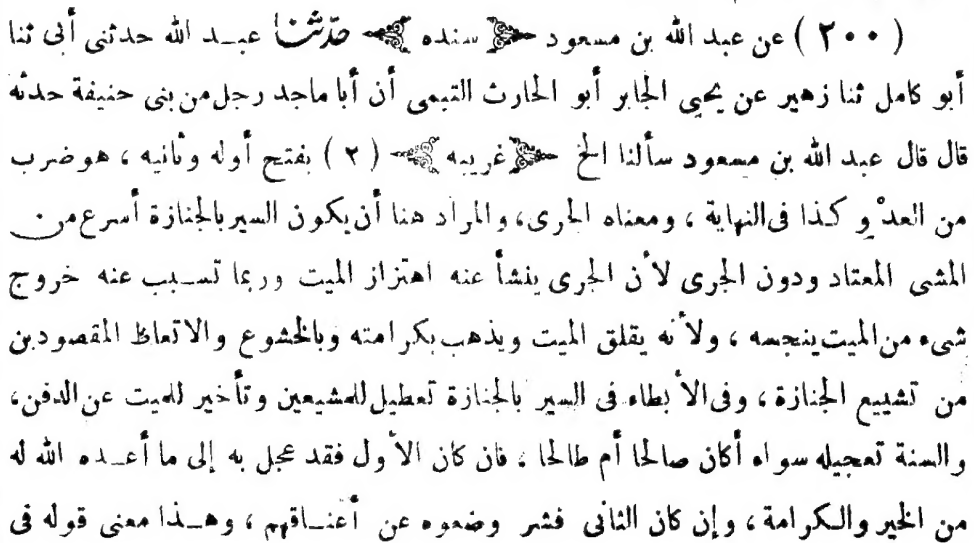 ( ٢٠٠ ) عن عبد الله بن مسعود ﴿ سنده ﴾ حدّثنا عبد الله حدثنى أبى ثنا
أبو كامل ثنا زهير عن يحيى الجابر أبو الحارث التيمى أن أبا ماجد رجل من بنى حنيفة حدثه
قال قال عبد الله بن مسعود سألنا الخ ﴿ غريبه ﴾ ( ٢ ) بفتح أوله وثانيه ، هو ضرب
من العدْو كذا فى النهاية ، ومعناه الجرى، والمراد هنا أن يكون السير بالجنازة أسرع من
المشى المعتاد ودون الجرى لأن الجرى ينشأ عنه اهتزاز الميت وربما تسبب عنه خروج
شىء من الميت ينجسه ، ولأنه يقلق الميت ويذهب بكرامته وبالخشوع والاتعاظ المقصودين
من تشييع الجنازة ، وفى الأبطاء فى السير بالجنازة تعطيل للمشيعين وتأخير للميت عن الدفن،
والسنة تعجيله سواء أكان صالحا أم طالحا ، فان كان الأول فقد عجل به إلى ما أعده الله له
من الخير والكرامة ، وإن كان الثانى فشر وضعوه عن أعناقهم ، وهذا معنى قوله فى